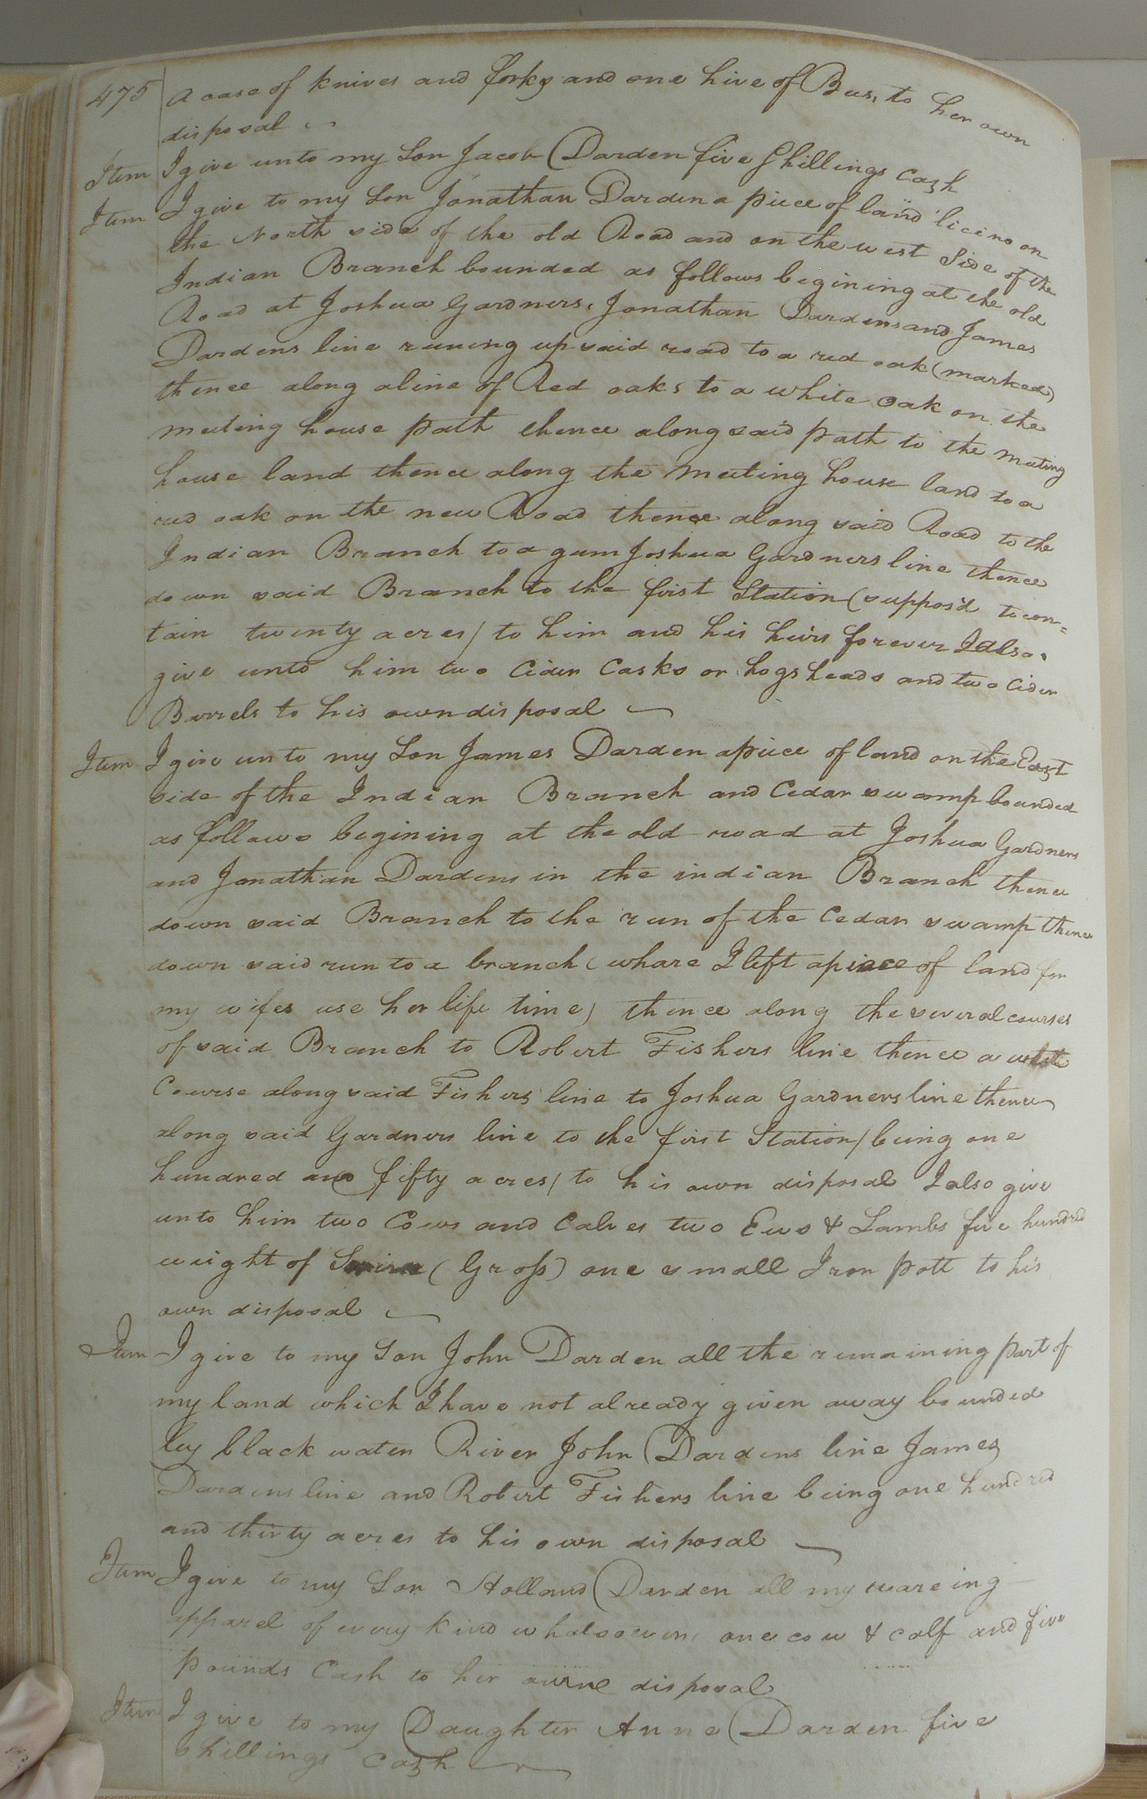 475 A case of knives and forks and one hive of Bees, to her own
disposal
Item I give unto my Son Jacob Darden five Shillings Cash
Item I give to my Son Jonathan Darden a piece of land liceing on
the North side of the old Road and on the west Side of the
Indian Branch bounded as follows begining at the old
Road at Joshua Gardners, Jonathan Dardens and James
Dardens line runing up said road to a red oak (marked)
thence along a line of Red oaks to a white oak on the
meeting house path thence along said path to the meeting
house land thence along the meeting house land to a
red oak on the new Road thence along said Road to the
Indian Branch to a gum Joshua Gardners line thence
down said Branch to the first Station (suppos'd to con=
tain twenty acres) to him and his heirs forever I also
give unto him two Cider Casks or hogsheads and two Cider
Barrels to his own disposal
Item I give unto my Son James Darden a piece of land on the East
side of the Indian Branch and Cedar swamp bounded
as follows begining at the old road at Joshua Gardners
and Jonathan Dardens in the indian Branch thence
down said Branch to the run of the Cedar swamp thence
down said run to a branch (whare I left a piece of land for
my wifes use her life time) thence along the several courses
of said Branch to Robert Fishers line thence a west
Course along said Fishers line to Joshua Gardners line thence
along said Gardners line to the first Station (being one
hundred and fifty acres) to his own disposal I also give
unto him two Cows and Calves two Ews & Lambs five hundred
weight of Swine (Gross) one small Iron pott to his
own disposal
Item I give to my Son John Darden all the remaining part of
my land which I have not already given away bounded
by black water River John Dardens line James
Dardens line and Robert Fishers line being one hundred
and thirty acres to his own disposal
Item I give to my Son Holland Darden all my wareing
apparel of every kind whatsoever, one cow & calf and five
pounds Cash to her owne disposal
Item I give to my Daughter Anne Darden five
shillings Cash